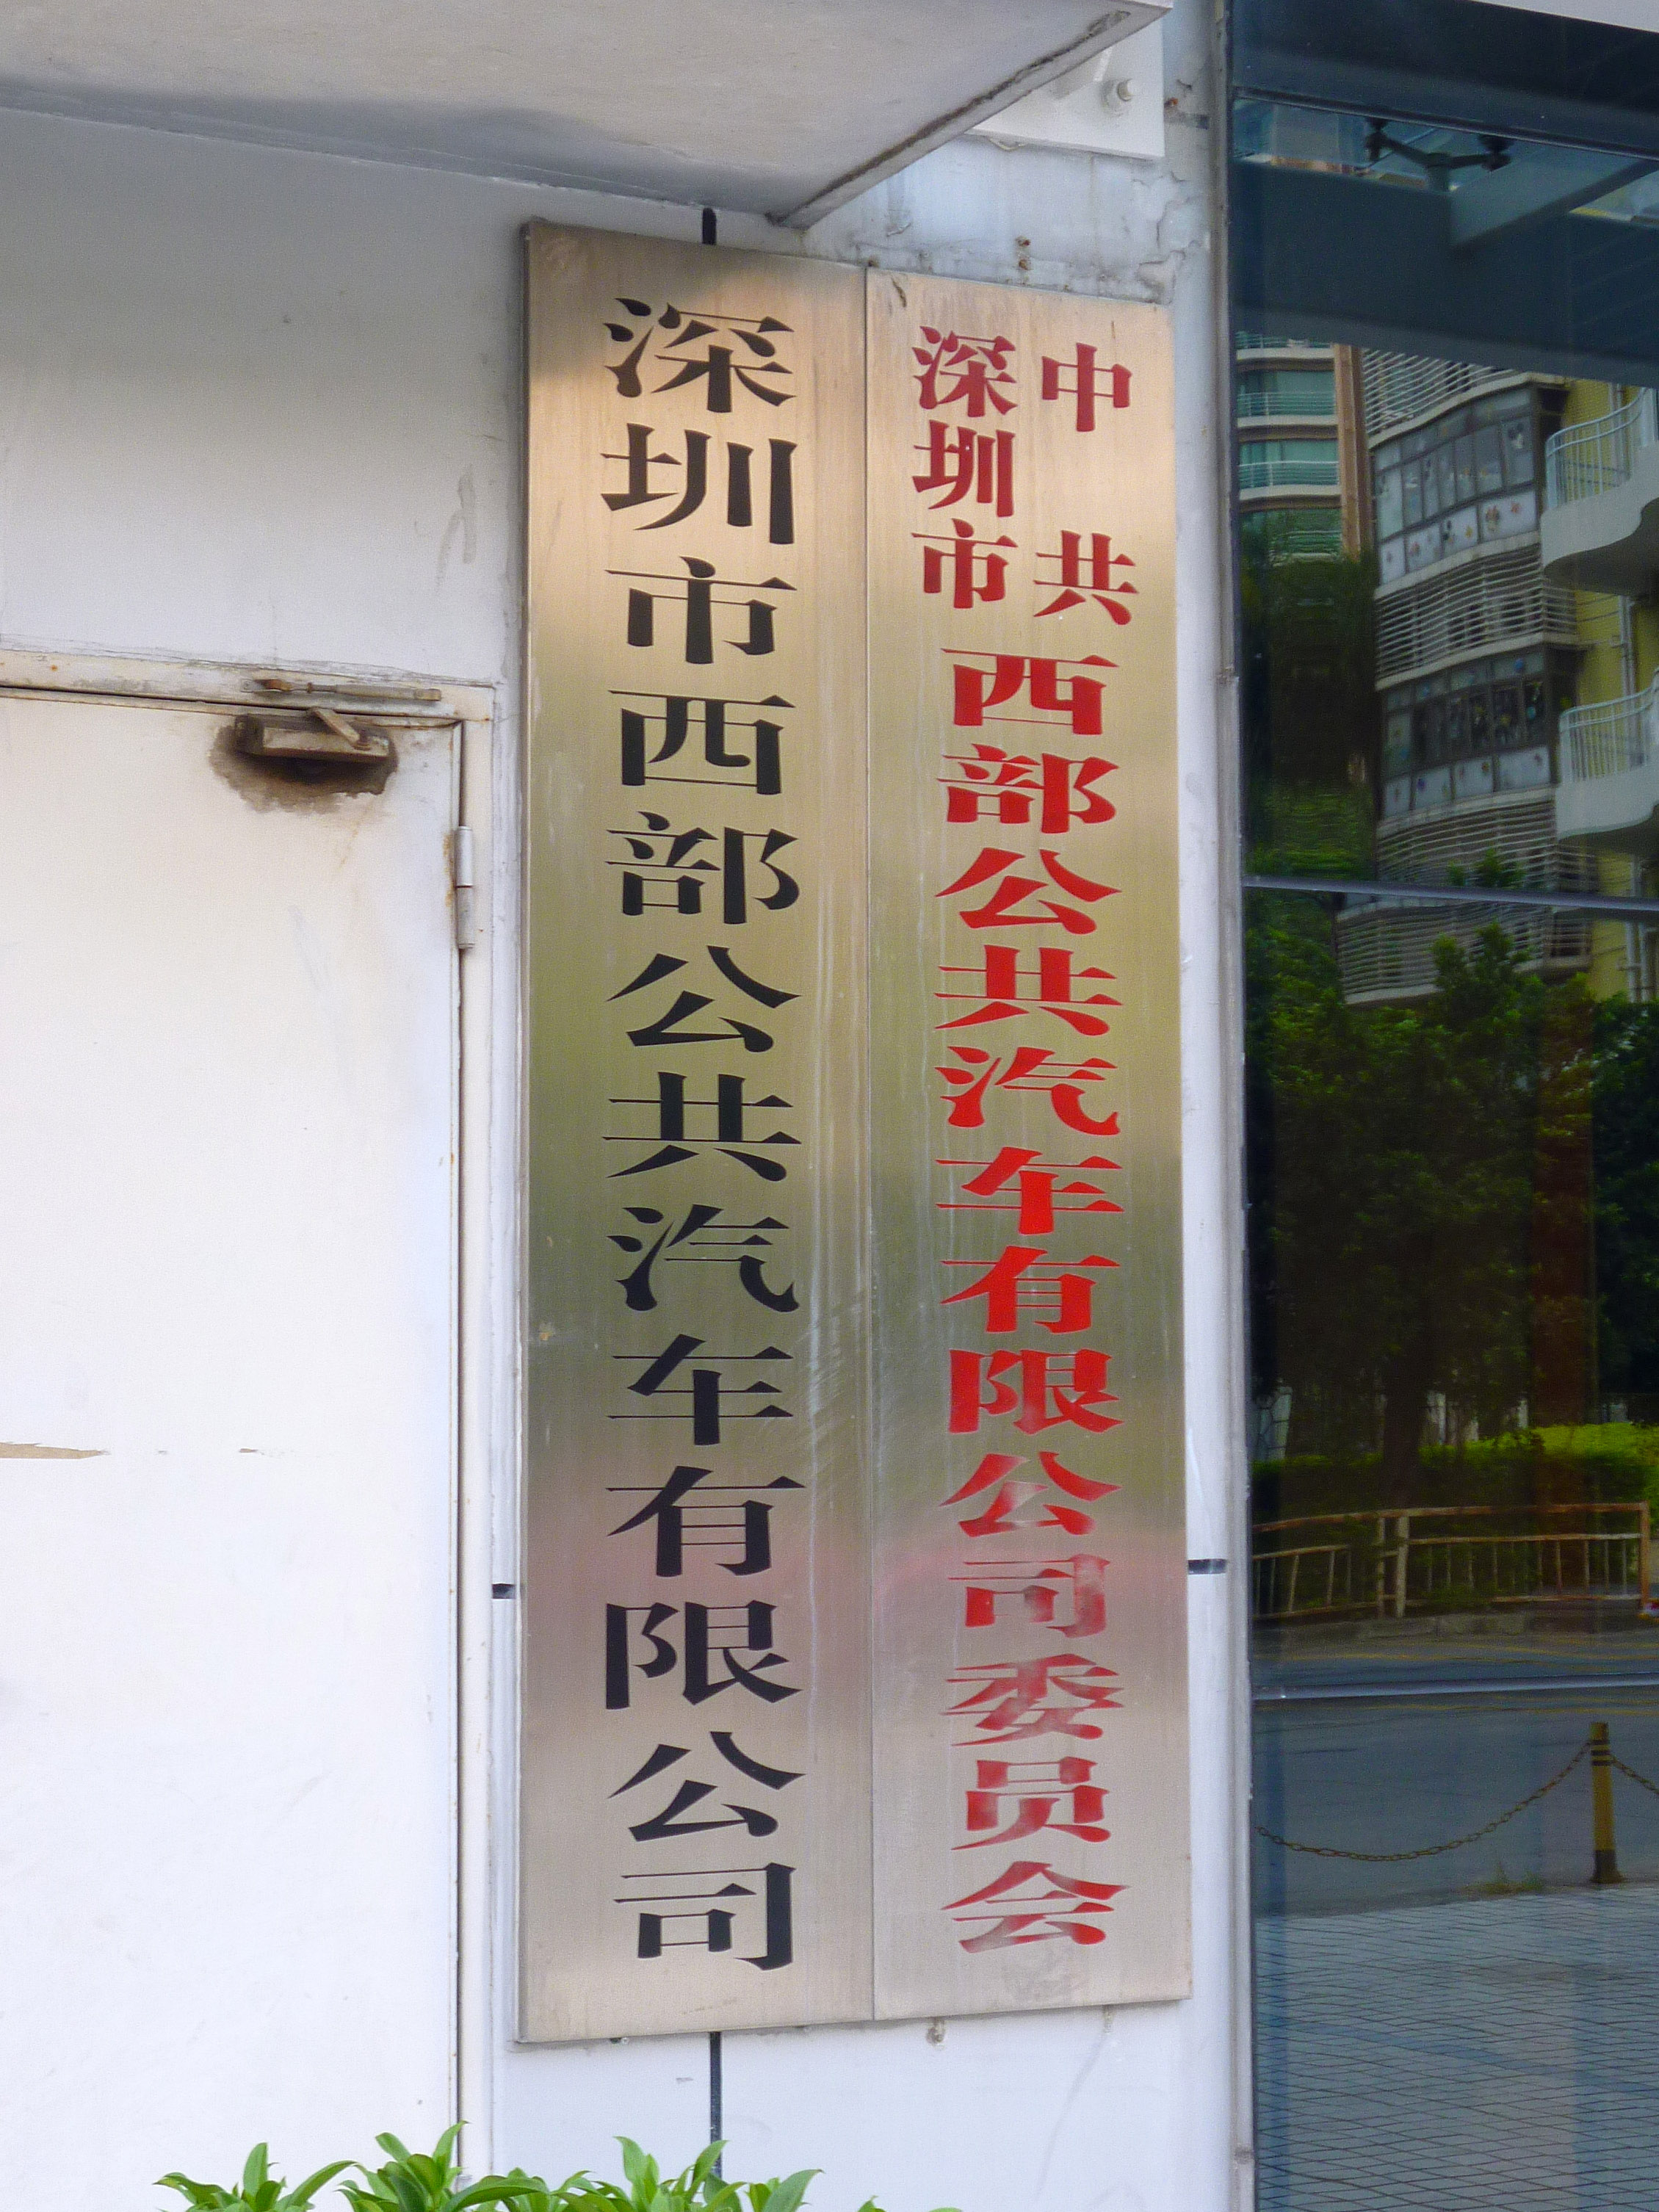 深圳市西部公共汽车有限公司
中共
深圳市
西部公共汽车有限公司委员会